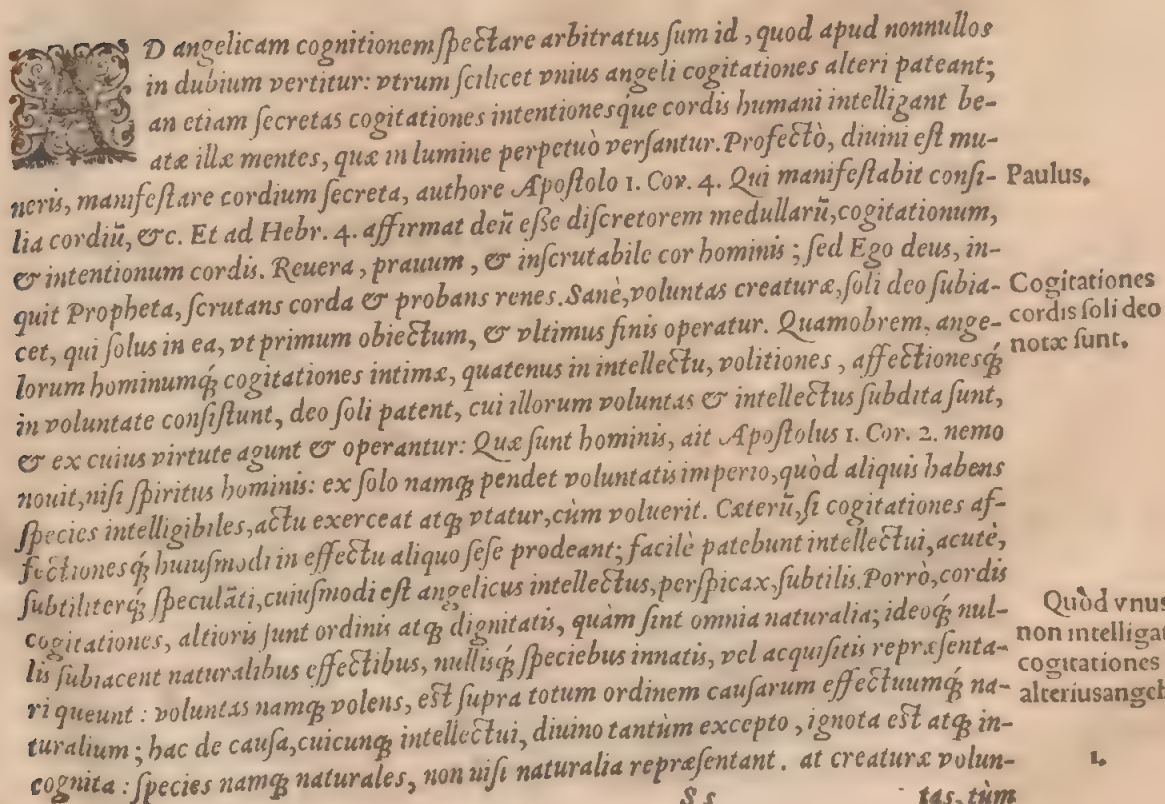 AD angelicam cognitionem ſpectare arbitratus ſum id, quod apud nonnullos
in dubium vertitur: vtrum ſcilicet vnius angeli cogitationes alteri pateant;
an etiam ſecretas cogitationes intentionesq́ue cordis humani intelligant be-
atæ illæ mentes, quæ in lumine perpetuò verſantur. Profectò, diuini eſt mu-
neris, manifeſtare cordium ſecreta, authore Apoſtolo 1. Cor. 4. Qui manifeſtabit conſi-
Paulus.
lia cordiū, &c. Et ad Hebr. 4. affirmat deū eſſe diſcretorem medullarū, cogitationum,
& intentionum cordis. Reuera, prauum, & inſcrutabile cor hominis; ſed Ego deus, in-
quit Propheta, ſcrutans corda & probans renes. Sanè, voluntas creaturæ, ſoli deo ſubia-
Cogitationes
cordis ſoli deo
notæ ſunt.
cet, qui ſolus in ea, vt primum obiectum, & vltimus finis operatur. Quamobrem, ange-
lorum hominumq́; cogitationes intimæ, quatenus in intellectu, volitiones, affectionesq́;
in voluntate conſiſtunt, deo ſoli patent, cui illorum voluntas & intellectus ſubdita ſunt,
& ex cuius virtute agunt & operantur: Quæ ſunt hominis, ait Apoſtolus 1. Cor. 2. nemo
nouit, niſi ſpiritus hominis: ex ſolo namq; pendet voluntatis imperio, quòd aliquis habens
ſpecies intelligibiles, actu exerceat atq; vtatur, cùm voluerit. Cæterū, ſi cogitationes af-
fectionesq́; huiuſmodi in effectu aliquo ſeſe prodeant; facilè patebunt intellectui, acutè,
ſubtiliterq́; ſpeculāti, cuiuſmodi eſt angelicus intellectus, perſpicax, ſubtilis. Porrò, cordis
cogitationes, altioris ſunt ordinis atq; dignitatis, quàm ſint omnia naturalia; ideoq́; nul-
lis ſubiacent naturalibus effectibus, nullisq́; ſpeciebus innatis, vel acquiſitis repræſenta-
ri queunt: voluntas namq; volens, eſt ſupra totum ordinem cauſarum effectuumq́; na-
Quòd vnus
non intelligat
cogitationes
alterius angeli
turalium; hac de cauſa, cuicunq; intellectui, diuino tantùm excepto, ignota eſt atq; in-
cognita: ſpecies namq; naturales, non niſi naturalia repræſentant. at creaturæ volun-
1.
S s
tas, tùm